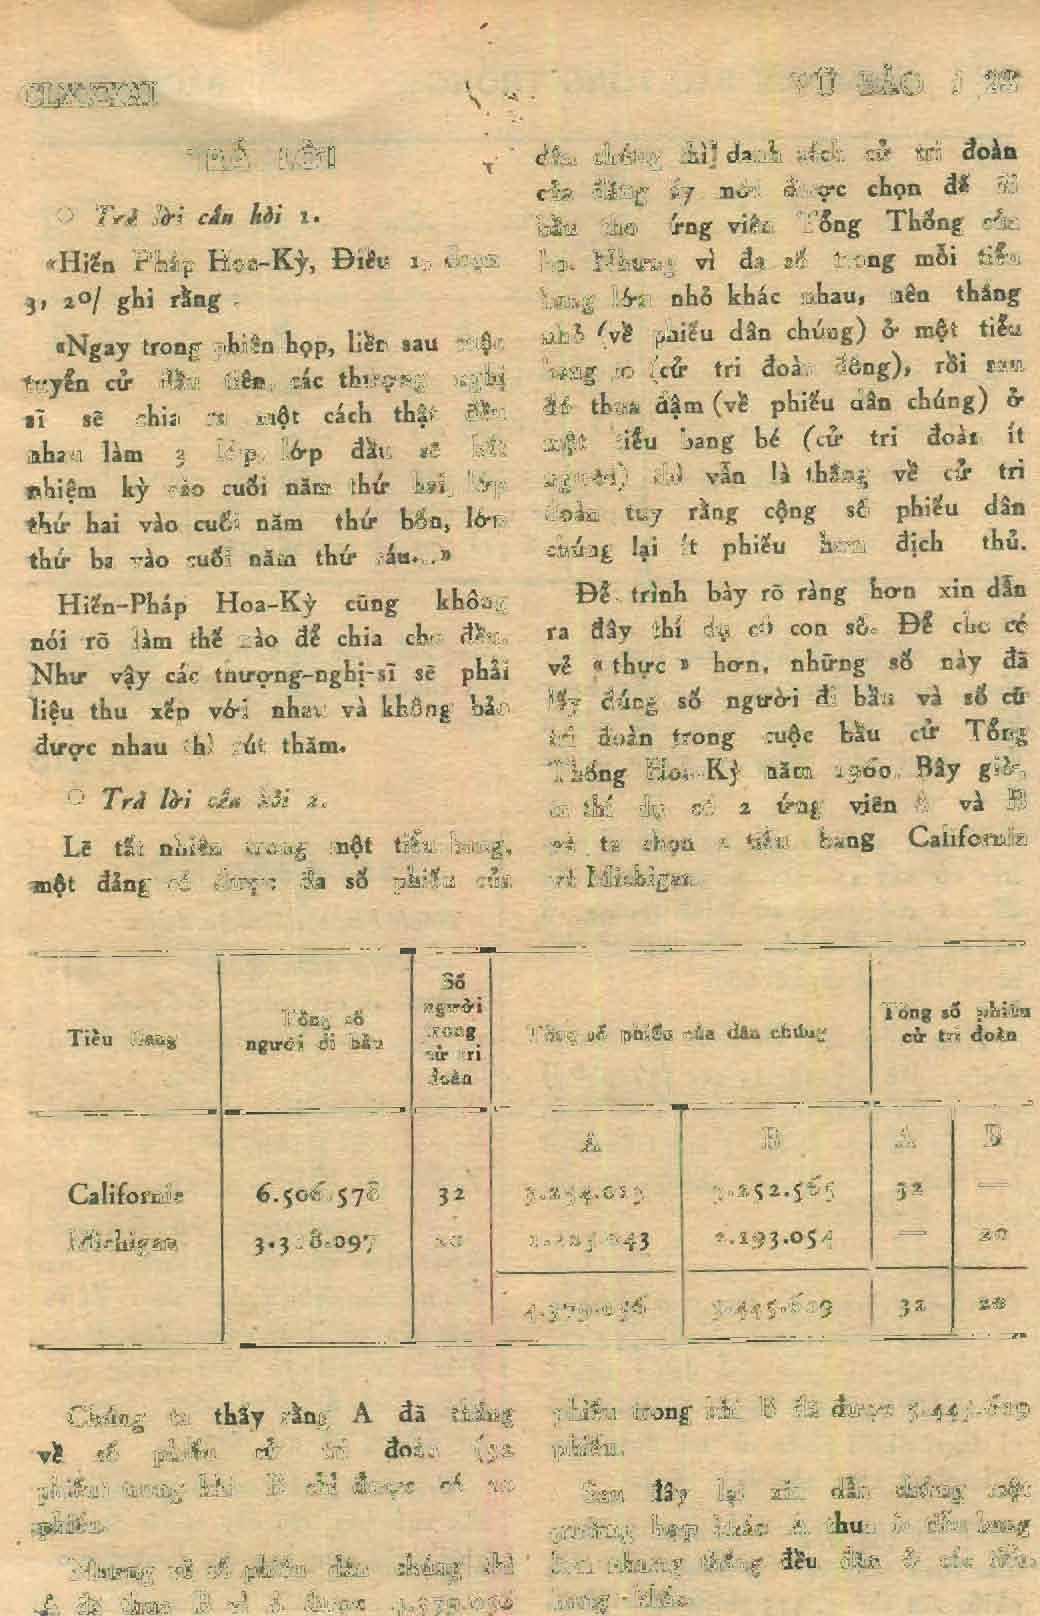 VŨ BẢO / 23
TRẢ LỜI
○ Trả lời câu hỏi 1.
«Hiến Pháp Hoa-Kỳ, Điều 1, đoạn
3, 20/ ghi rằng :
«Ngay trong phiên họp, liền sau cuộc
tuyển cử đầu tiên, các thượng nghị
sĩ sẽ chia ra một cách thật đều
nhau làm 3 lớp, lớp đầu sẽ hết
nhiệm kỳ vào cuối năm thứ hai, lớp
thứ hai vào cuối năm thứ bốn, lớp
thứ ba vào cuối năm thứ sáu...»
Hiến-Pháp Hoa-Kỳ cũng không
nói rõ làm thế nào để chia cho đều.
Như vậy các thượng-nghị-sĩ sẽ phải
liệu thu xếp với nhau và không bảo
được nhau thì rút thăm.
○ Trả lời câu hỏi 2.
Lẽ tất nhiên trong một tiểu bang,
một đảng có được đa số phiếu của
dân chúng thì danh sách cử tri đoàn
của đảng ấy mới được chọn để đi
bầu cho ứng viên Tổng Thống của
họ. Nhưng vì đa số trong mỗi tiểu
bang lớn nhỏ khác nhau, nên thắng
nhỏ (về phiếu dân chúng) ở một tiểu
bang to (cử tri đoàn đông), rồi sau
đó thua đậm (về phiếu dân chúng) ở
một tiểu bang bé (cử tri đoàn ít
người) thì vẫn là thắng về cử tri
đoàn tuy rằng cộng số phiếu dân
chúng lại ít phiếu hơn địch thủ.
Để trình bày rõ ràng hơn xin dẫn
ra đây thí dụ có con số. Để cho có
vẻ « thực » hơn, những số này đã
lấy đúng số người đi bầu và số cử
tri đoàn trong cuộc bầu cử Tổng
Thống Hoa-Kỳ năm 1960. Bây giờ,
thí dụ có 2 ứng viên A và B
và ta chọn 2 tiểu bang California
và Michigan.
Tiểu bang
Tổng số
người đi bầu
Số
người
trong
cử tri
đoàn
Tổng số phiếu của dân chúng
Tổng số phiếu
cử tri đoàn
A B A B
California 6.506.578 32 3.254.013 3.252.565 32 —
Michigan 3.318.097 20 1.125.043 2.193.054 — 20
4.379.056 5.445.619 32 20
Chúng ta thấy rằng A đã thắng
về số phiếu cử tri đoàn (32
phiếu) trong khi B chỉ được có 20
phiếu.
Nhưng về số phiếu dân chúng thì
A đã thua B vì A được 4.379.056
phiếu trong khi B đã được 5.445.619
phiếu.
Sau đây lại xin dẫn chứng một
trường hợp khác A thua ở tiểu bang
lớn nhưng thắng đều đặn ở các tiểu
bang khác.